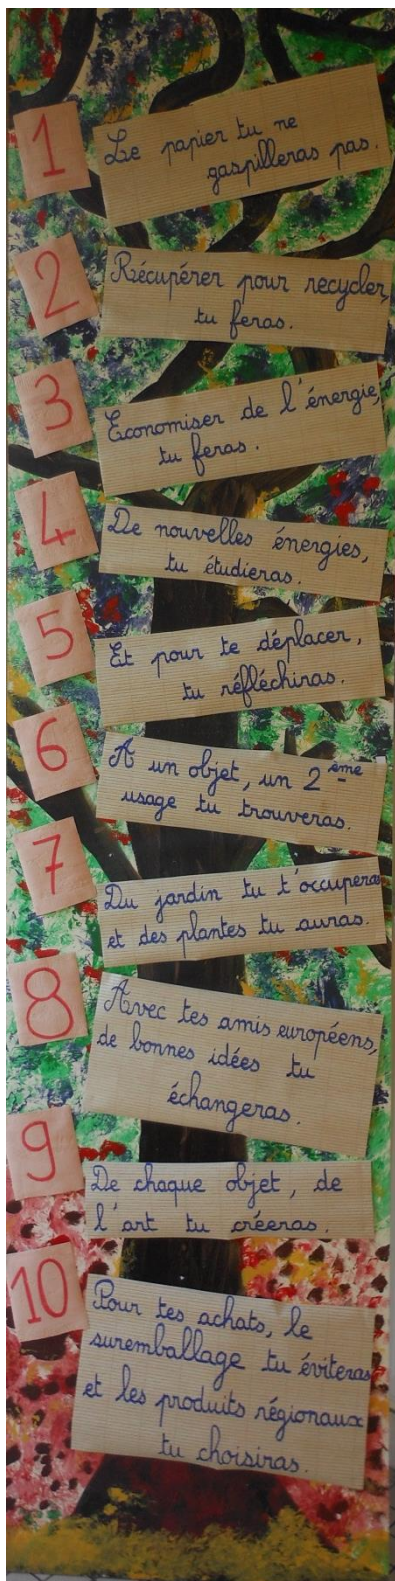 1
Le papier tu ne
gaspilleras pas.
2
Récupérer pour recycler,
tu feras.
3
Economiser de l'énergie,
tu feras.
4
De nouvelles énergies,
tu étudieras.
5
Et pour te déplacer,
tu réfléchiras.
6
A un objet, un 2ème
usage tu trouveras.
7
Du jardin tu t'occuperas
et des plantes tu auras.
8
Avec tes amis européens,
de bonnes idées tu
échangeras.
9
De chaque objet, de
l'art tu créeras.
10
Pour tes achats, le
suremballage tu éviteras
et les produits régionaux
tu choisiras.